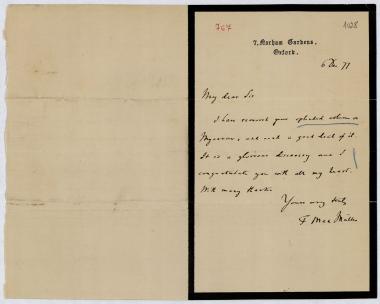 767
1028
7, Norham Gardens,
Oxford.
6 Dec. 77
My dear Sir
I have received your splendid volume on
Mycenae, and read a good deal of it.
It is a glorious discovery and I
congratulate you with all my heart.
With many thanks
Yours very truly
F Max Müller